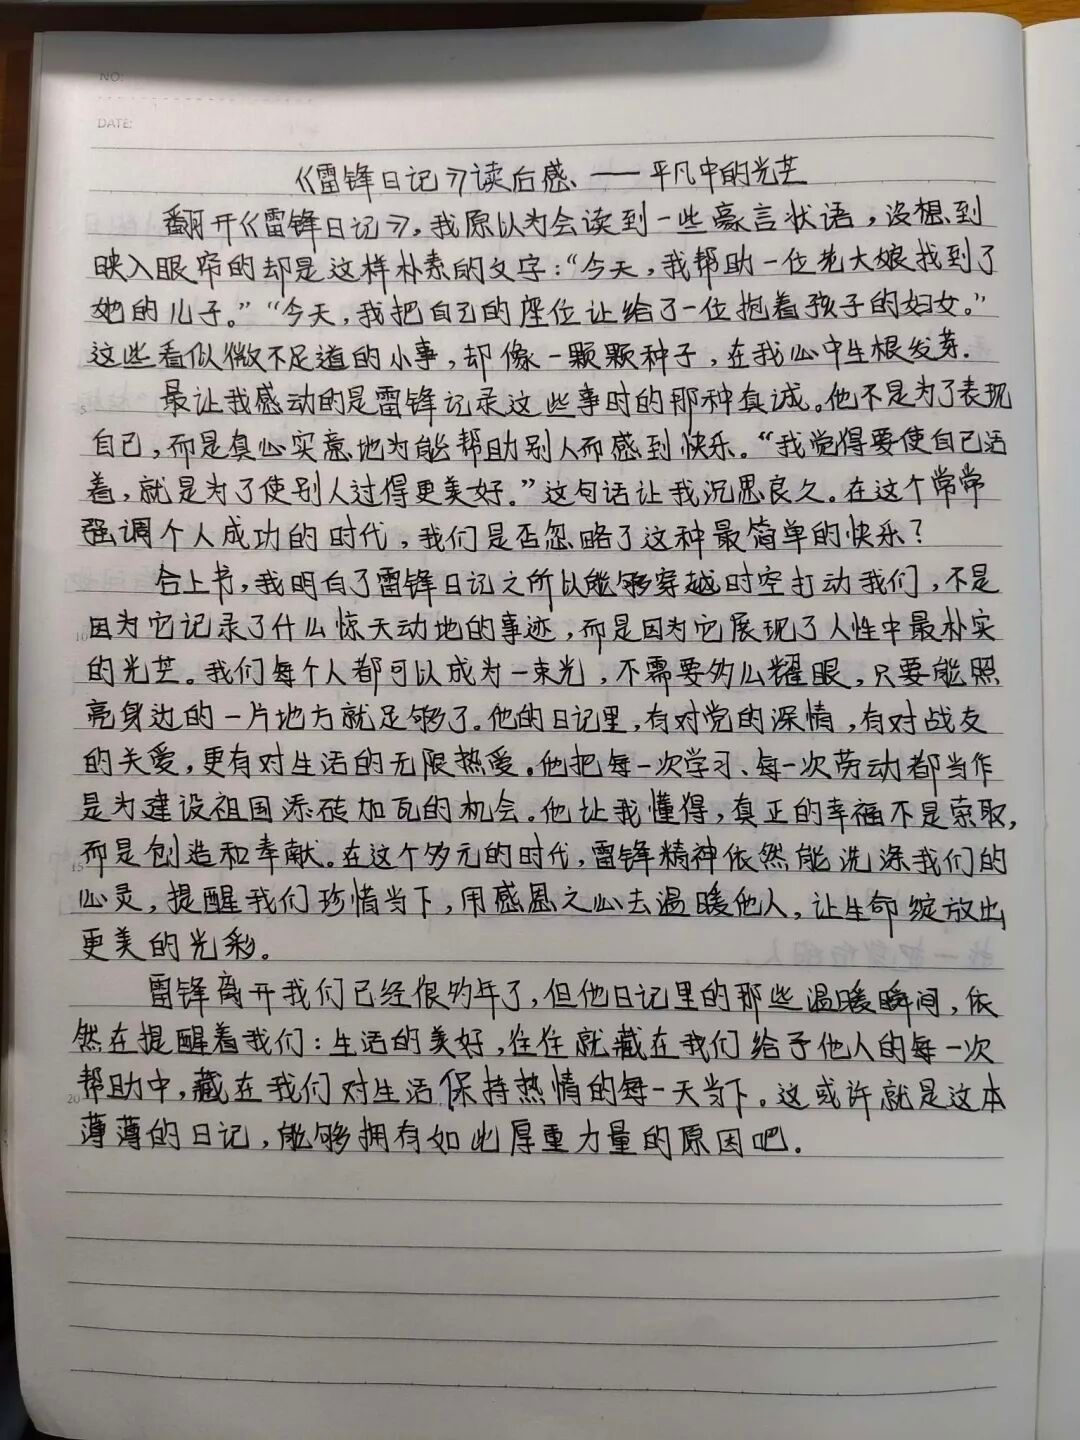 NO:
DATE:
《雷锋日记》读后感、——平凡中的光芒
翻开《雷锋日记》，我原以为会读到一些豪言状语，没想到
映入眼帘的却是这样朴素的文字：“今天，我帮助一位老大娘找到了
她的儿子。”“今天，我把自己的座位让给了一位抱着孩子的妇女。”
这些看似微不足道的小事，却像一颗颗种子，在我心中生根发芽.
5 最让我感动的是雷锋记录这些事时的那种真诚。他不是为了表现
自己，而是真心实意地为能帮助别人而感到快乐。“我觉得要使自己活
着，就是为了使别人过得更美好。”这句话让我沉思良久。在这个常常
强调个人成功的时代，我们是否忽略了这种最简单的快乐？
合上书，我明白了雷锋日记之所以能够穿越时空打动我们，不是
10 因为它记录了什么惊天动地的事迹，而是因为它展现了人性中最朴实
的光芒。我们每个人都可以成为一束光，不需要多么耀眼，只要能照
亮身边的一片地方就足够了。他的日记里，有对党的深情，有对战友
的关爱，更有对生活的无限热爱。他把每一次学习、每一次劳动都当作
是为建设祖国添砖加瓦的机会。他让我懂得，真正的幸福不是索取，
15 而是创造和奉献。在这个多元的时代，雷锋精神依然能洗涤我们的
心灵，提醒我们珍惜当下，用感恩之心去温暖他人，让生命绽放出
更美的光彩。
雷锋离开我们已经很多年了，但他日记里的那些温暖瞬间，依
然在提醒着我们：生活的美好，往往就藏在我们给予他人的每一次
20 帮助中，藏在我们对生活保持热情的每一天当下。这或许就是这本
薄薄的日记，能够拥有如此厚重力量的原因吧.